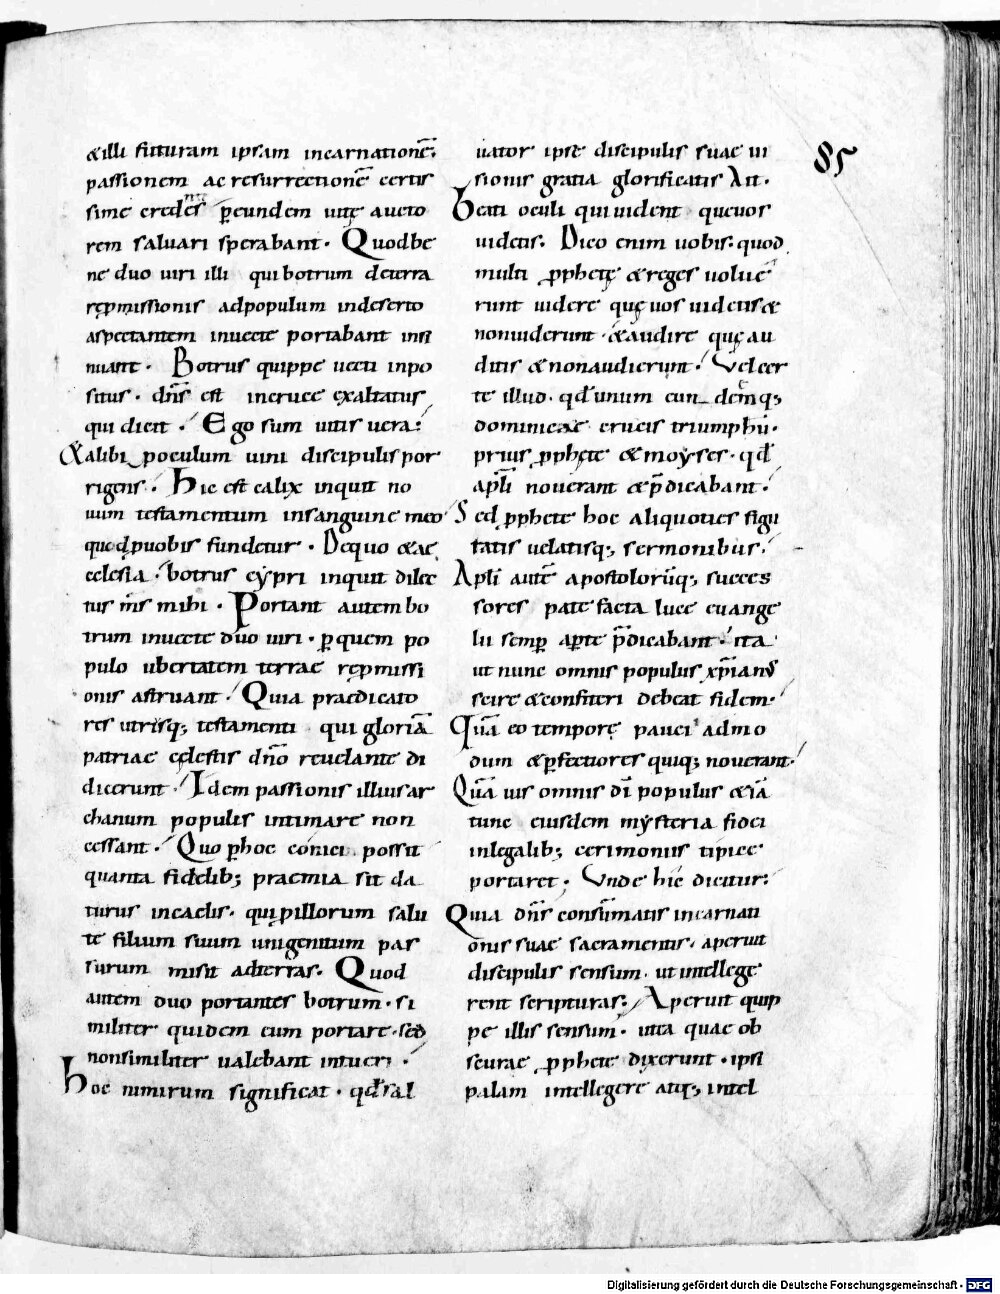 &illi futuram ipsam incarnationē.
passionem ac resurrectionē certis
sime credentes p̄ eundem uitę aucto
rem saluari sperabant. Quod be
ne duo uiri illi qui botrum de terra
repmissionis ad populum in deserto
aspectantem in uecte portabant insi
nuant. Botrus quippe uecti inpo
situs. dn̄s est in cruce exaltatus
qui dicit. Ego sum uitis uera.
&alibi poculum uini discipulis por
rigens. Hic est calix inquit no
uum testamentum in sanguine meo
que d̨ p uobis fundetur. De quo & ae
cclesia. botrus cypri inquit dilec
tus m̄s mihi. Portant autem bo
trum in uecte duo uiri. p̄ quem po
pulo ubertatem terrae repmissi
onis astruant. Quia praedicato
res utriusq; testamenti qui gloriā
patriae cęlestis dn̄o reuelante di
dicerunt. Idem passionis illius ar
chanum populis intimare non
cessant. Quo p̄ hoc conici possit
quanta fidelib; praemia sit da
turus in caelis. qui p illorum salu
te filium suum unigenitum pas
surum misit ad terras. Quod
autem duo portantes botrum. si
militer quidem eum portare. sed
non similiter ualebant intueri.
Hoc nimirum significat. qd̄ sal
uator ipse discipulis suae ui
sionis gratia glorificatis Ait.
Beati oculi qui uident que uos
uidetis. Dico enim uobis. quod
multi pphetę & reges uolue
runt uidere quę uos uidetis &
non uiderunt. & audire quę au
ditis & non audierunt. Vel cer
te illud. qd̄ unum eundemq;
dominicae crucis triumphū.
prius pphete & moyses. qd̄
apl̄i nouerant & p̄dicabant.
Sed pphete hoc aliquoties figu
ratis uelatisq; sermonibus.
Apl̄i autē apostolorūq; succes
sores patefacta luce euange
lii semp̄ apte p̄dicabant. ita
ut nunc omnis populus xp̄ianus
scire & confiteri debeat fidem.
Quā eo tempore pauci admo
dum & p̄fectiores quiq; nouerant.
Quā uis omnis dī populus & iā
tunc eiusdem mysteria fidei
in legalib; cerimoniis tipice
portaret. Vnde hic dicitur.
Quia dn̄s consūmatis incarnati
onis suae sacramentis. aperuit
discipulis sensum. ut intellege
rent scripturas. Aperuit quip
pe illis sensum. ut ea quae ob
scurae pphete dixerunt. ipsi
palam intellegere atq; intel
85
Digitalisierung gefördert durch die Deutsche Forschungsgemeinschaft - DFG